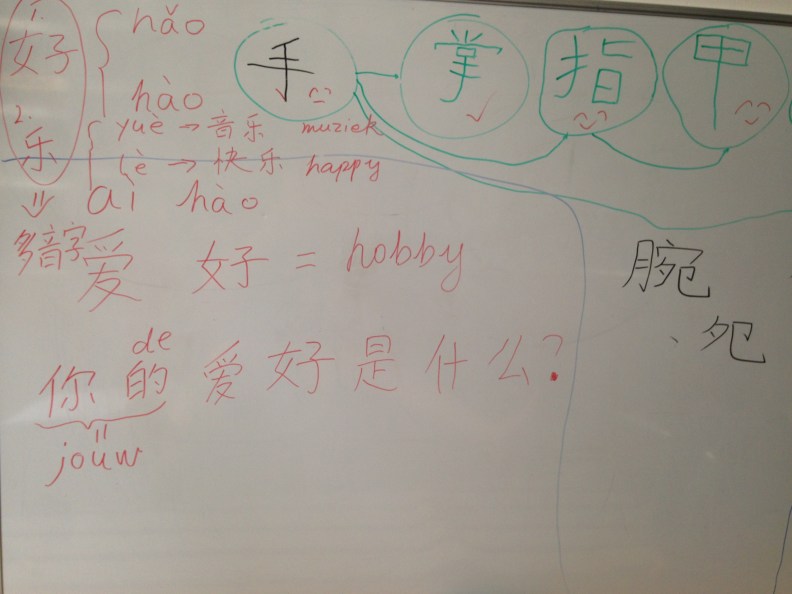 1. 好 hǎo
hào
手 掌 指 甲
2. 乐 yuè → 音乐 muziek
lè → 快乐 happy
ài hào
多音字
爱 好 = hobby
de
你的爱好是什么?
jouw
腕
、夗